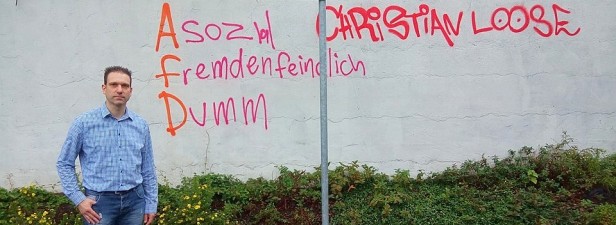 Asozial CHRiSTiAN LOOSE
Fremdenfeindlich
Dumm